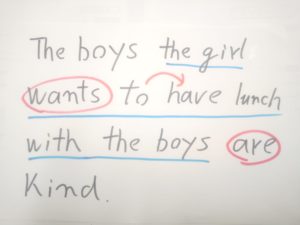 The boys the girl
wants to have lunch
with the boys are
Kind.